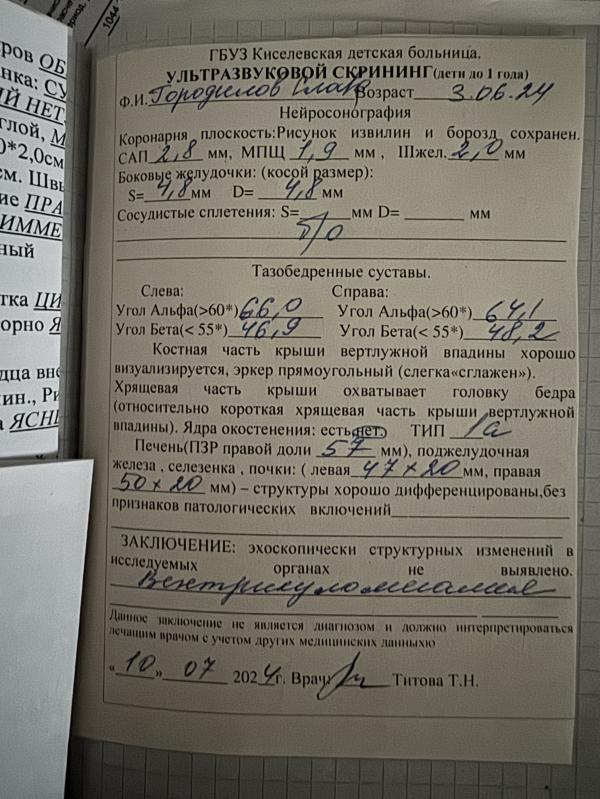 1044
ров ОБ
нка: СУ
ИЙ НЕТ
глой, М
0*2,0см
см. Швы
ие ПРА
ИММЕ
ный
тка ЦИ
орно Я
дца вне
ин., Ри
а ЯСНЕ
ГБУЗ Киселевская детская больница.
УЛЬТРАЗВУКОВОЙ СКРИНИНГ(дети до 1 года)
Ф.И. Городилов Слава Возраст 3.06.24
Нейросонография
Коронарня плоскость:Рисунок извилин и борозд сохранен.
САП 2,8 мм, МПЩ 1,9 мм , Шжел. 2,0 мм
Боковые желудочки: (косой размер):
S= 4,8 мм D= 4,8 мм
Сосудистые сплетения: S= мм D= мм
б/о
Тазобедренные суставы.
Слева: Справа:
Угол Альфа(>60*) 66,0 Угол Альфа(>60*) 64,1
Угол Бета(< 55*) 46,9 Угол Бета(< 55*) 48,2
Костная часть крыши вертлужной впадины хорошо
визуализируется, эркер прямоугольный (слегка«сглажен»).
Хрящевая часть крыши охватывает головку бедра
(относительно короткая хрящевая часть крыши вертлужной
впадины). Ядра окостенения: есть,нет. ТИП 1а
Печень(ПЗР правой доли 57 мм), поджелудочная
железа , селезенка , почки: ( левая 47×20 мм, правая
50×20 мм) – структуры хорошо дифференцированы,без
признаков патологических включений
ЗАКЛЮЧЕНИЕ: эхоскопически структурных изменений в
исследуемых органах не выявлено.
Вентрикуломегалия
Данное заключение не является диагнозом и должно интерпретироваться
лечащим врачом с учетом других медицинских данныхю
«10» 07 2024г. Врач: Титова Т.Н.